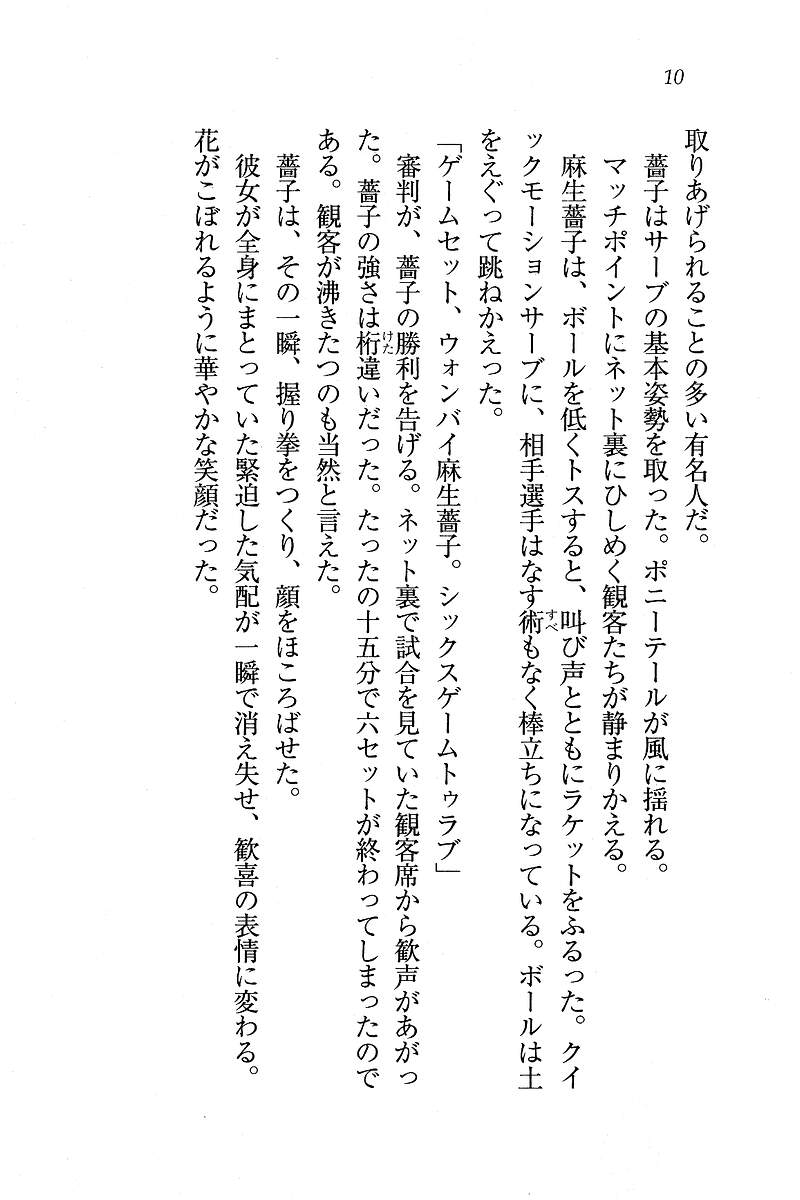 10
取りあげられることの多い有名人だ。
薔子はサーブの基本姿勢を取った。ポニーテールが風に揺れる。
マッチポイントにネット裏にひしめく観客たちが静まりかえる。
麻生薔子は、ボールを低くトスすると、叫び声とともにラケットをふるった。クイ
ックモーションサーブに、相手選手はなす術もなく棒立ちになっている。ボールは土
をえぐって跳ねかえった。
「ゲームセット、ウォンバイ麻生薔子。シックスゲームトゥラブ」
審判が、薔子の勝利を告げる。ネット裏で試合を見ていた観客席から歓声があがっ
た。薔子の強さは桁違いだった。たったの十五分で六セットが終わってしまったので
ある。観客が沸きたつのも当然と言えた。
薔子は、その一瞬、握り拳をつくり、顔をほころばせた。
彼女が全身にまとっていた緊迫した気配が一瞬で消え失せ、歓喜の表情に変わる。
花がこぼれるように華やかな笑顔だった。